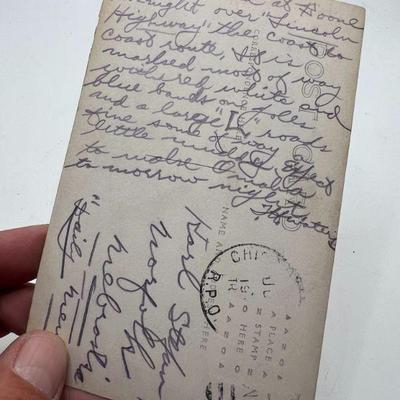 at Boone
night over "Lincoln
Highway" the coast to
coast route, It is
marked most of way
with red, white and
blue bands on poles
and a large "L" roads
fine some of way a
little muddy. Expect
to make Omaha
tomorrow night
Karl
Norfolk
Nebraska
"Daily News"
POST
NAME AND
HERE
PLACE
STAMP
HERE
CHI
R.P.O.